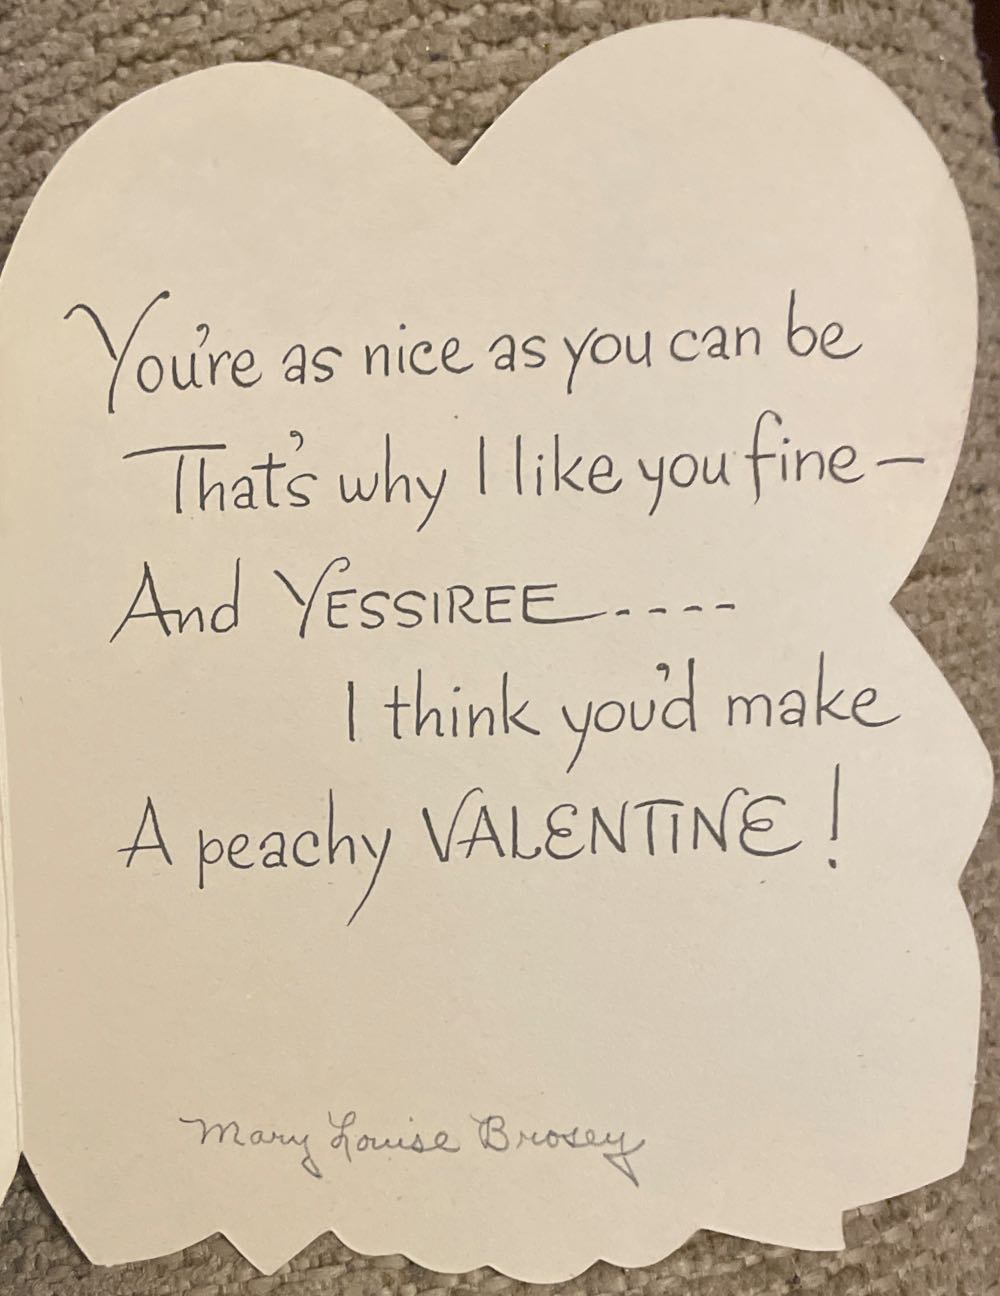 You're as nice as you can be
That's why I like you fine —
And YESSIREE ----
I think you'd make
A peachy VALENTINE !
Mary Louise Brosey